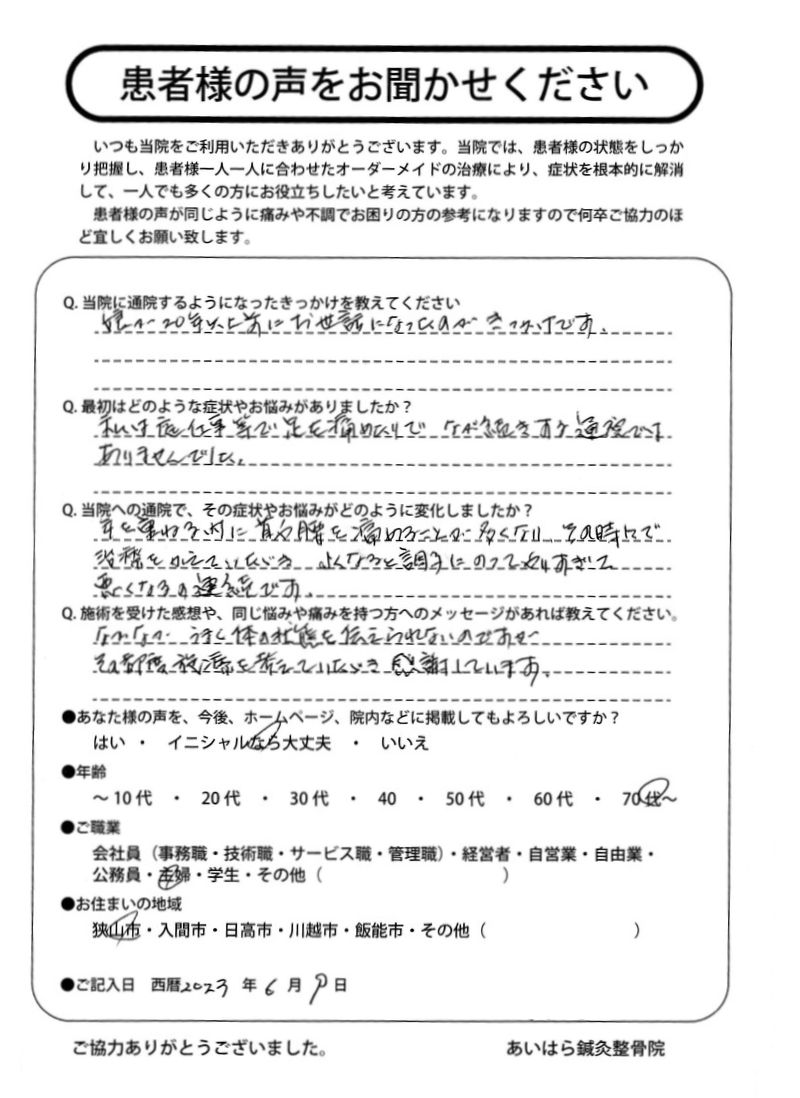 患者様の声をお聞かせください
いつも当院をご利用いただきありがとうございます。当院では、患者様の状態をしっか
り把握し、患者様一人一人に合わせたオーダーメイドの治療により、症状を根本的に解消
して、一人でも多くの方にお役立ちしたいと考えています。
患者様の声が同じように痛みや不調でお困りの方の参考になりますので何卒ご協力のほ
ど宜しくお願い致します。
Q. 当院に通院するようになったきっかけを教えてください
娘が20年以上前にお世話になったのがきっかけです。
Q. 最初はどのような症状やお悩みがありましたか？
私は庭仕事等で足を痛めたりで なが続きする通院では
ありませんでした。
Q. 当院への通院で、その症状やお悩みがどのように変化しましたか？
年を重ねる内に首や腰を痛めることが多くなり その時々で
治療をしていただき よくなると調子にのってやりすぎて
悪くなるの連続です。
Q. 施術を受けた感想や、同じ悩みや痛みを持つ方へのメッセージがあれば教えてください。
なかなか うまく体の状態を伝えられないのですが
その都度施療を考えていただき 感謝しています。
●あなた様の声を、今後、ホームページ、院内などに掲載してもよろしいですか？
はい ・ イニシャルなら大丈夫 ・ いいえ
●年齢
〜10代 ・ 20代 ・ 30代 ・ 40 ・ 50代 ・ 60代 ・ 70代〜
●ご職業
会社員（事務職・技術職・サービス職・管理職）・経営者・自営業・自由業・
公務員・主婦・学生・その他（ ）
●お住まいの地域
狭山市・入間市・日高市・川越市・飯能市・その他（ ）
●ご記入日 西暦2023年 6月 9日
ご協力ありがとうございました。 あいはら鍼灸整骨院